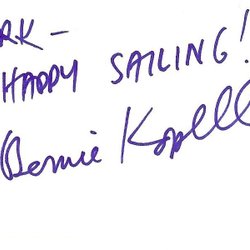 RK –
HAPPY SAILING!
Bernie Kopell